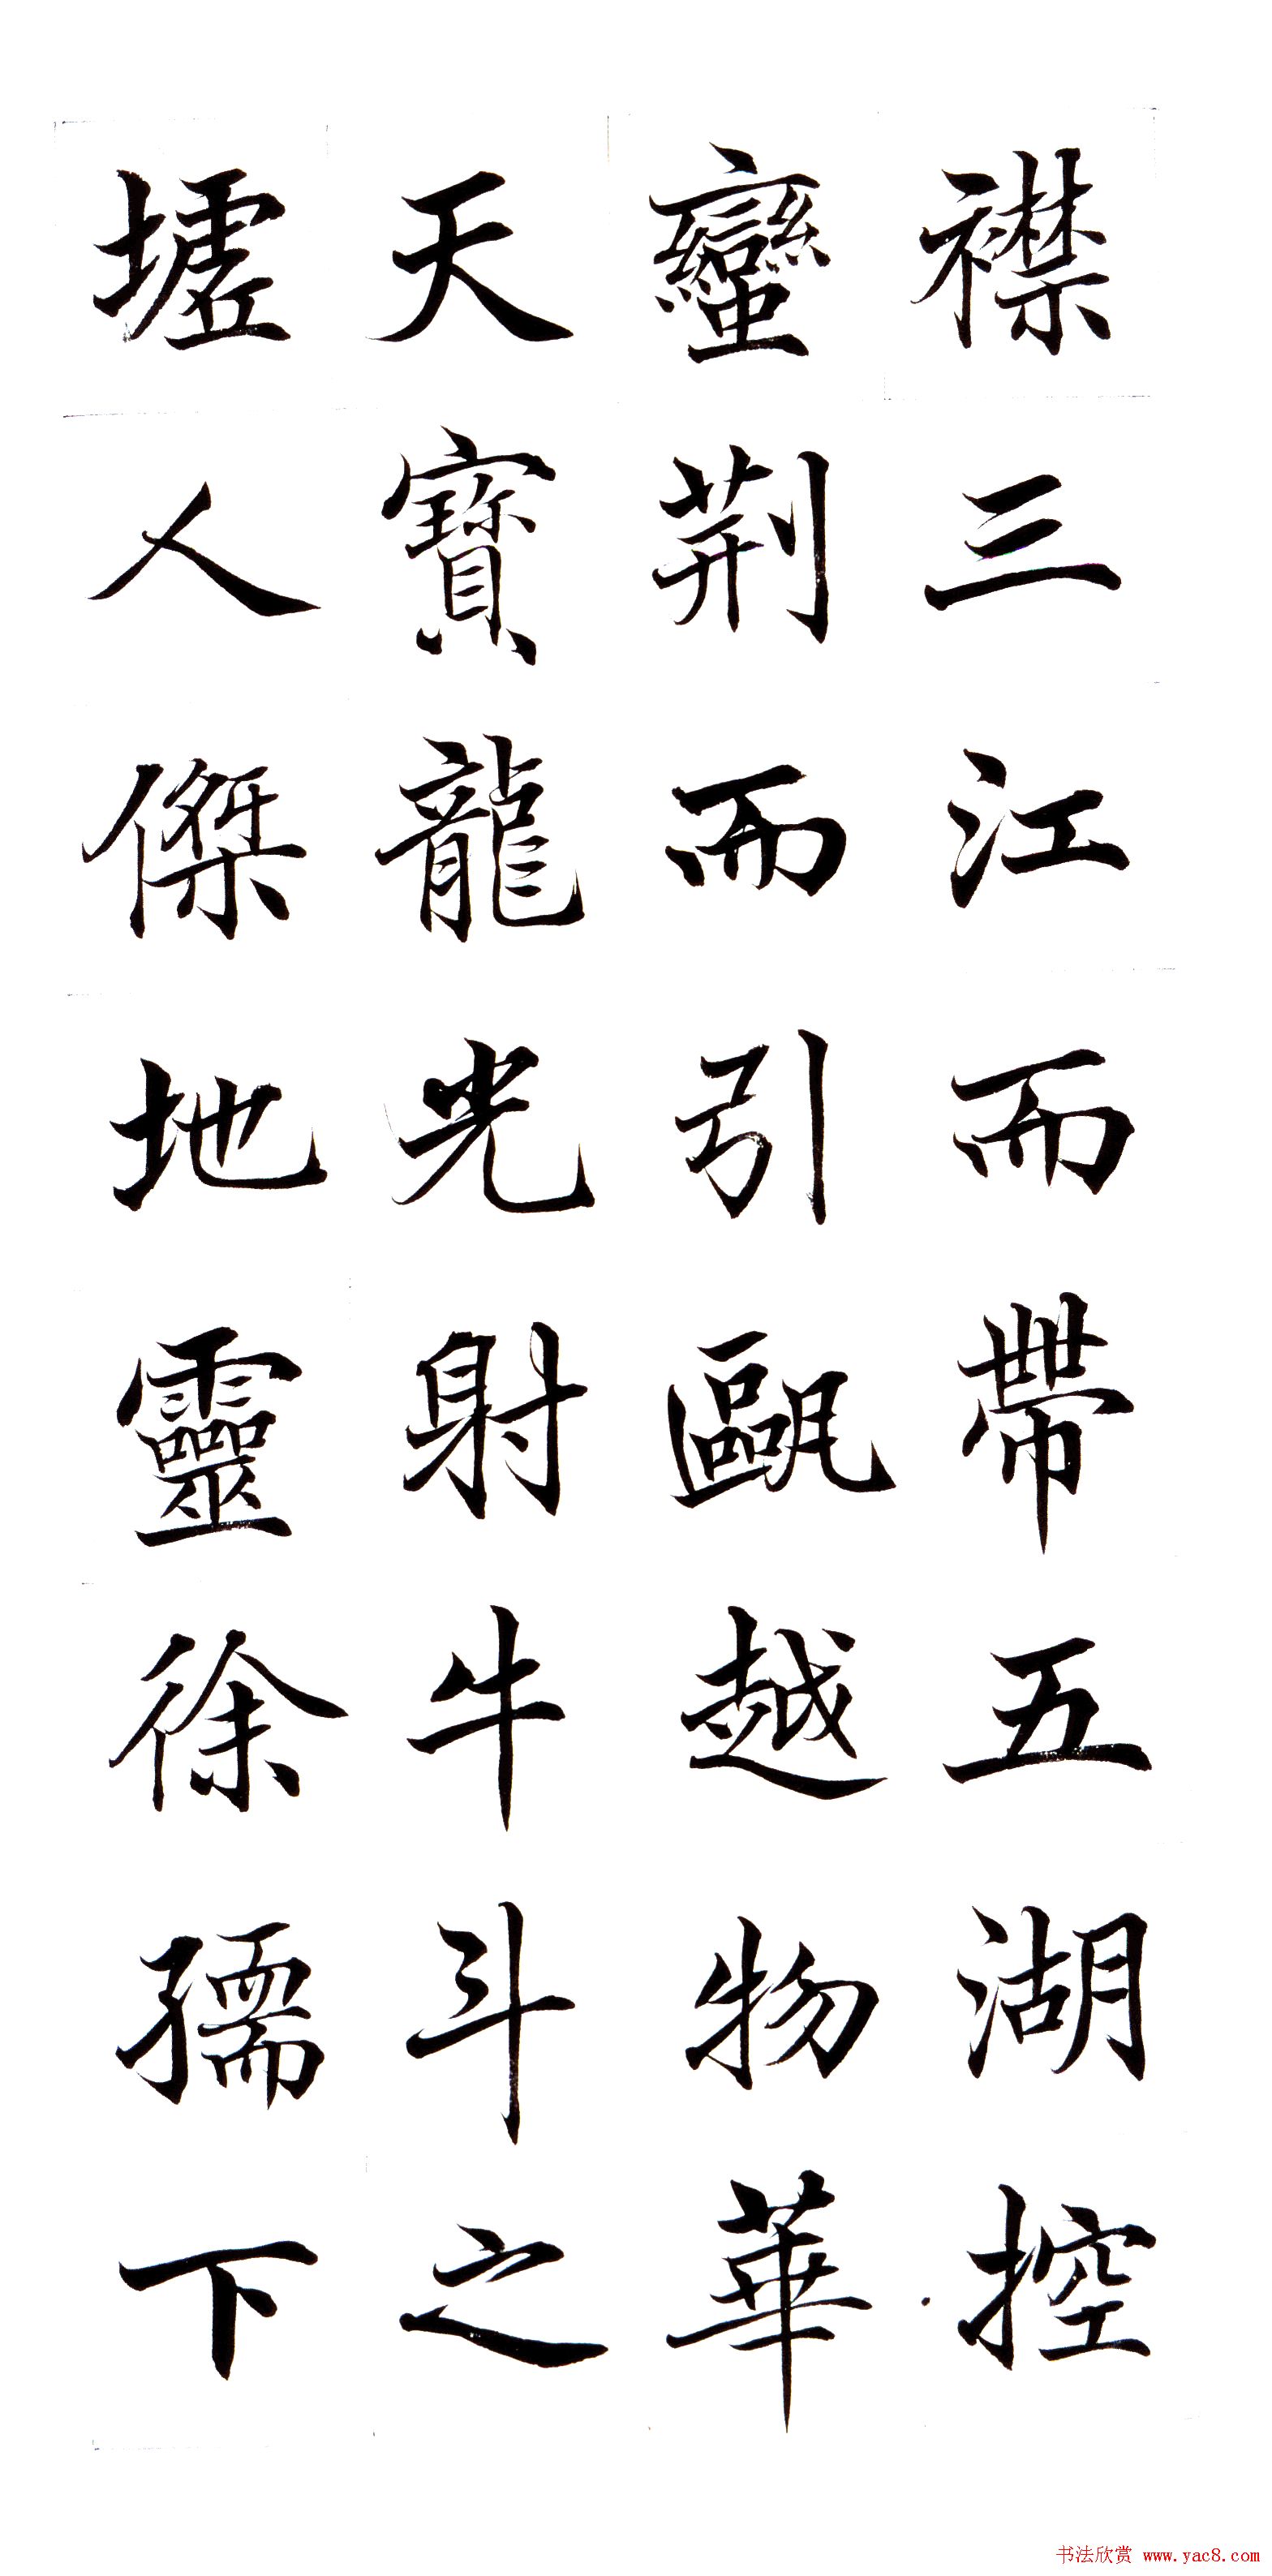 襟三江而帶五湖控
蠻荆而引甌越物華
天寳龍光射牛斗之
墟人傑地靈徐孺下
书法欣赏 www.yac8.com